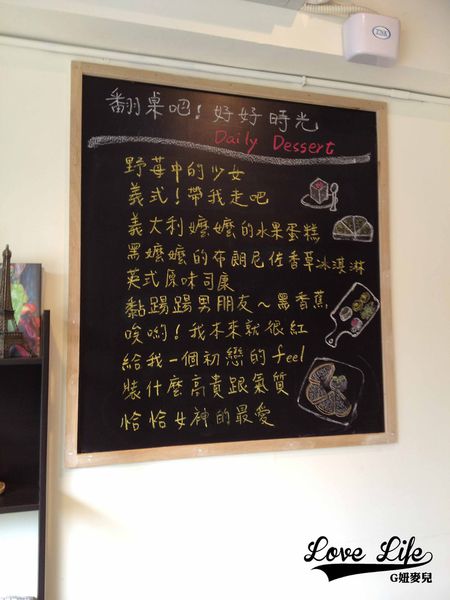 翻桌吧!好好時光
Daily Dessert
野莓中的少女
義式!帶我走吧
義大利嬤嬤的水果蛋糕
黑嬤嬤的布朗尼佐香草冰淇淋
英式原味司康
黏踢踢男朋友~黑香蕉
唉喲!我本來就很紅
給我一個初戀的feel
裝什麼高貴跟氣質
恰恰女神的最愛
Love Life
G妞麥兒